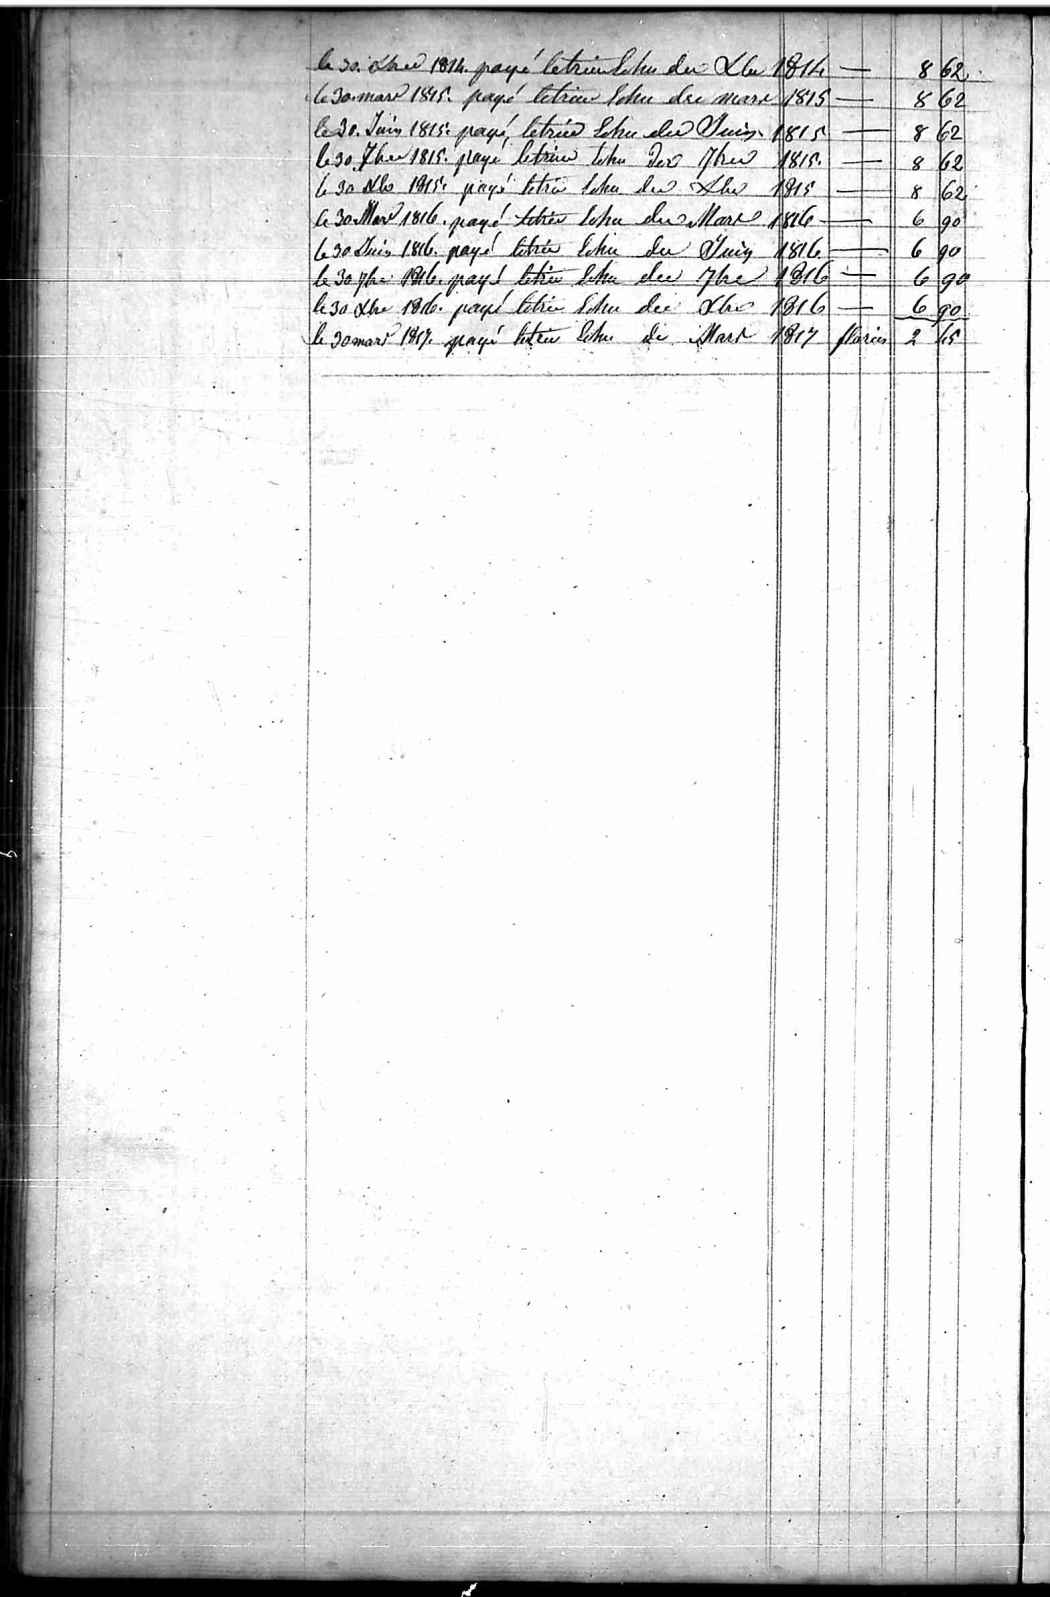 le 30. Xbre 1814. payé letrim Echu du Xbre 1814 — 8 62
le 30. mars 1815. payé letrim Echu du mars 1815 — 8 62
le 30. Juin 1815. payé letrim Echu du Juin 1815 — 8 62
le 30 7bre 1815. payé letrim Echu du 7bre 1815. — 8 62
le 30 Xbr 1815. payé letrim Echu du Xbre 1815 — 8 62
le 30 Mars 1816. payé letrim Echu du Mars 1816 — 6 90
le 30 Juin 1816. payé letrim Echu du Juin 1816 — 6 90
le 30 7bre 1816. payé letrim Echu du 7bre 1816 — 6 90
le 30 Xbre 1816. payé letrim Echu du Xbre 1816 — 6 90
le 30 mars 1817. payé letrim Echu de Mars 1817 florins 2 45